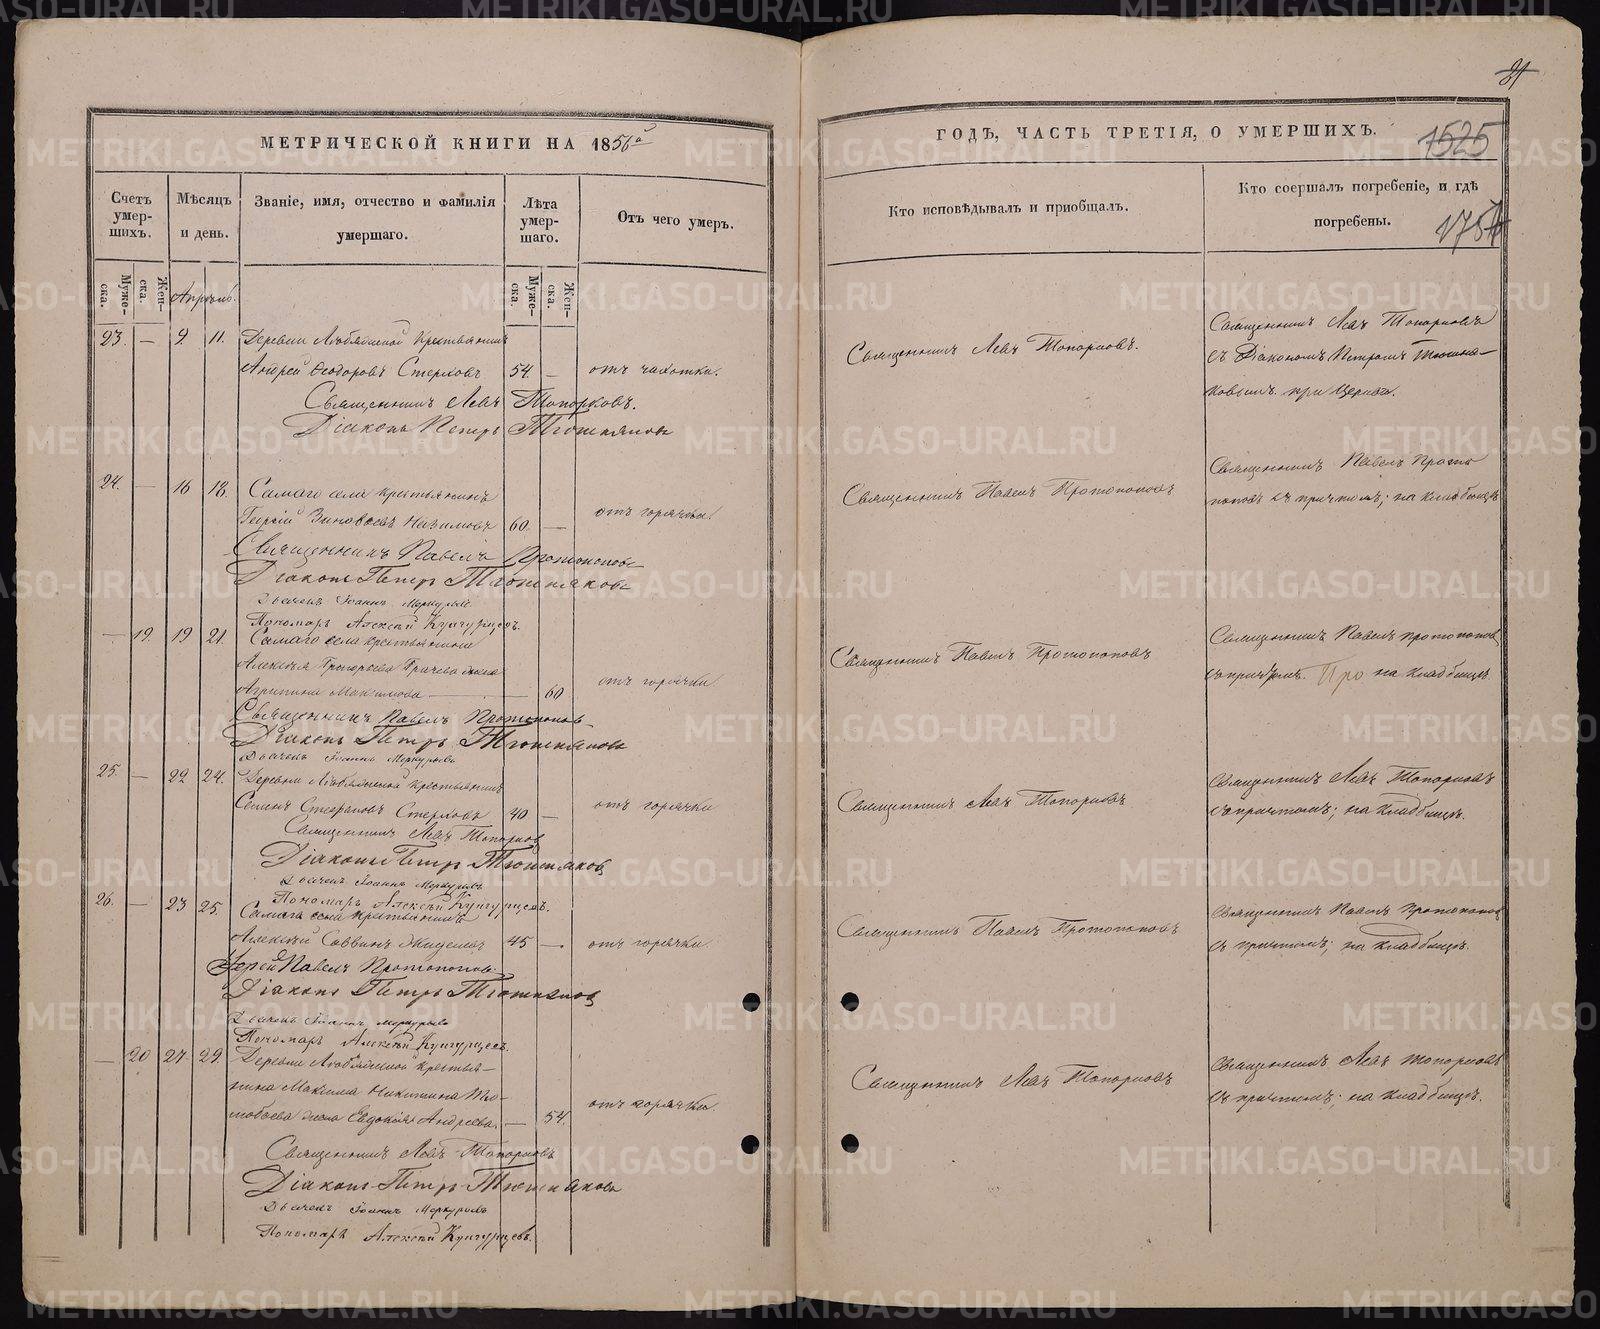 31
МЕТРИЧЕСКОЙ КНИГИ НА 1856й
Счетъ умер-шихъ.
Мѣсяцъ и день.
Званіе, имя, отчество и фамилія умершаго.
Лѣта умер-шаго.
Отъ чего умеръ.
Муже-ска.
Жен-ска.
Апрѣль.
Муже-ска.
Жен-ска.
23. — 9 11. Деревни крестьянинъ
Андрей Ѳеодоровъ Стерховъ 54. — отъ чахотки.
Священникъ Левъ Топорковъ.
Діаконъ Петръ Тюшняковъ
24. — 16 18. Самаго села крестьянинъ
Георгій Зиновьевъ 60. — отъ горячки.
Священникъ Павелъ Протопоповъ
Діаконъ Петръ Тюшняковъ
Дьячекъ Іоаннъ Меркурьевъ
Пономарь Алексѣй Кунгурцевъ.
— 19. 19 21. Самаго села крестьянина
Алексѣя Григорьева Грачева жена
Агрипина Максимова — 60 отъ горячки.
Священникъ Павелъ Протопоповъ
Діаконъ Петръ Тюшняковъ
Дьячекъ Іоаннъ Меркурьевъ
25. — 22 24. Деревни крестьянинъ
Семенъ Стефановъ Стерховъ 40 — отъ горячки
Священникъ Левъ Топорковъ
Діаконъ Петръ Тюшняковъ
Дьячекъ Іоаннъ Меркурьевъ
Пономарь Алексѣй Кунгурцевъ.
26. — 23 25. Самаго села крестьянинъ
Алексѣй Саввинъ 45 — отъ горячки.
Іерей Павелъ Протопоповъ
Діаконъ Петръ Тюшняковъ
Дьячекъ Іоаннъ Меркурьевъ
Пономарь Алексѣй Кунгурцевъ.
— 20 27 29. Деревни крестья-
нина Максима Никитина
жена Евдокія Андреева. — 54. отъ горячки.
Священникъ Левъ Топорковъ
Діаконъ Петръ Тюшняковъ
Дьячекъ Іоаннъ Меркурьевъ
Пономарь Алексѣй Кунгурцевъ.
ГОДЪ, ЧАСТЬ ТРЕТІЯ, О УМЕРШИХЪ.
1525
Кто исповѣдывалъ и пріобщалъ.
Кто соершалъ погребеніе, и гдѣ погребены.
Священникъ Левъ Топорковъ.
Священникъ Левъ Топорковъ
съ Діакономъ Петромъ Тюшня-
ковымъ при Церкви.
Священникъ Павелъ Протопоповъ
Священникъ Павелъ Прото
поповъ съ причтомъ; на кладбищѣ
Священникъ Павелъ Протопоповъ
Священникъ Павелъ Протопоповъ
съ причтомъ. Про на кладбищѣ
Священникъ Левъ Топорковъ
Священникъ Левъ Топорковъ
съ причтомъ; на кладбищѣ.
Священникъ Павелъ Протопоповъ
Священникъ Павелъ Протопоповъ
съ причтомъ; на кладбищѣ.
Священникъ Левъ Топорковъ
Священникъ Левъ Топорковъ
съ причтомъ; на кладбищѣ.
METRIKI.GASO-URAL.RU